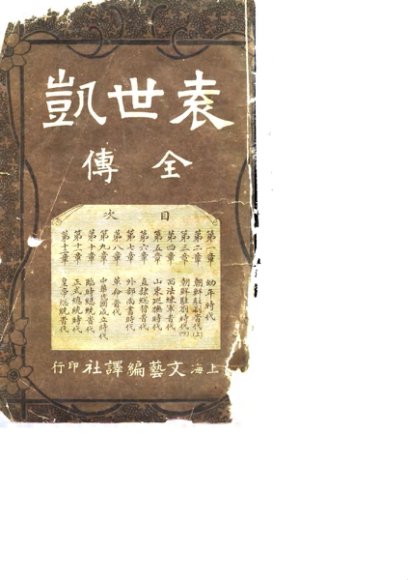 袁世凱
全傳
目次
第一章 幼年時代
第二章 朝鮮駐劄時代(上)
第三章 朝鮮駐劄時代(下)
第四章 西法練軍時代
第五章 山東巡撫時代
第六章 直隸總督時代
第七章 外部尚書時代
第八章 革命時代
第九章 中華民國成立時代
第十章 臨時總統時代
第十一章 正式總統時代
第十二章 皇帝總統時代
上海文藝編譯社印行